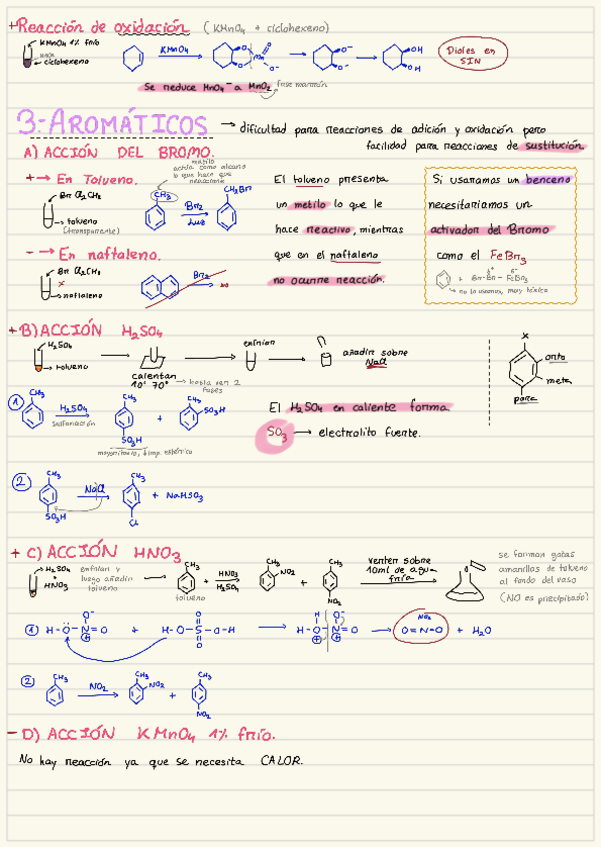 +Reacción de oxidación (KMnO4 + ciclohexeno)
KMnO4 1% frío
ciclohexeno
KMnO4
OH
OH
Dioles en
SIN
Se reduce MnO4⁻ a MnO2
fase marrón
3-AROMÁTICOS → dificultad para reacciones de adición y oxidación pero
facilidad para reacciones de sustitución.
A) ACCIÓN DEL BROMO.
metilo
actúa como alcano
lo que hace que
reaccione
+→ En Tolueno.
tolueno
(transparente)
CH3
Br2
luz
CH2Br
El tolueno presenta
un metilo lo que le
hace reactivo, mientras
que en el naftaleno
no ocurre reacción.
Si usaramos un benceno
necesitaríamos un
activador del Bromo
como el FeBr3
+ Br-Br - FeBr3
no lo usamos, muy tóxico
-→ En naftaleno.
naftaleno
Br2
no
+B) ACCIÓN H2SO4
H2SO4
tolueno
calentar
10' 70°
→ hasta ver 2
fases
enfriar
añadir sobre
NaCl
x
orto
meta
para
1
CH3
H2SO4
sulfonación
CH3
SO3H
+
CH3
SO3H
mayoritario, ↓imp. estérico
El H2SO4 en caliente forma
SO3 → electrolito fuerte.
2
CH3
SO3H
NaCl
CH3
Cl
+ NaHSO3
+ C) ACCIÓN HNO3
H2SO4
+
HNO3
enfriar y
luego añadir
tolueno
CH3
tolueno
+ HNO3
H2SO4
CH3
NO2
+
CH3
NO2
verter sobre
10ml de agua
fría
se forman gotas
amarillas de tolueno
al fondo del vaso
(NO es precipitado)
1
H-O-N=O
+
H-O-S-O-H
H-O-N=O
NO2
O=N=O
+ H2O
2
CH3
NO2
CH3
NO2
+
CH3
NO2
- D) ACCIÓN KMnO4 1% frío.
No hay reacción ya que se necesita CALOR.